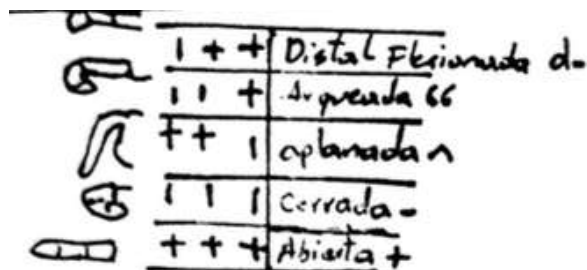 1 + + Distal Flexionada d-
1 1 + Arqueada 66
+ + 1 aplanada ^
1 1 1 Cerrada -
+ + + Abierta +